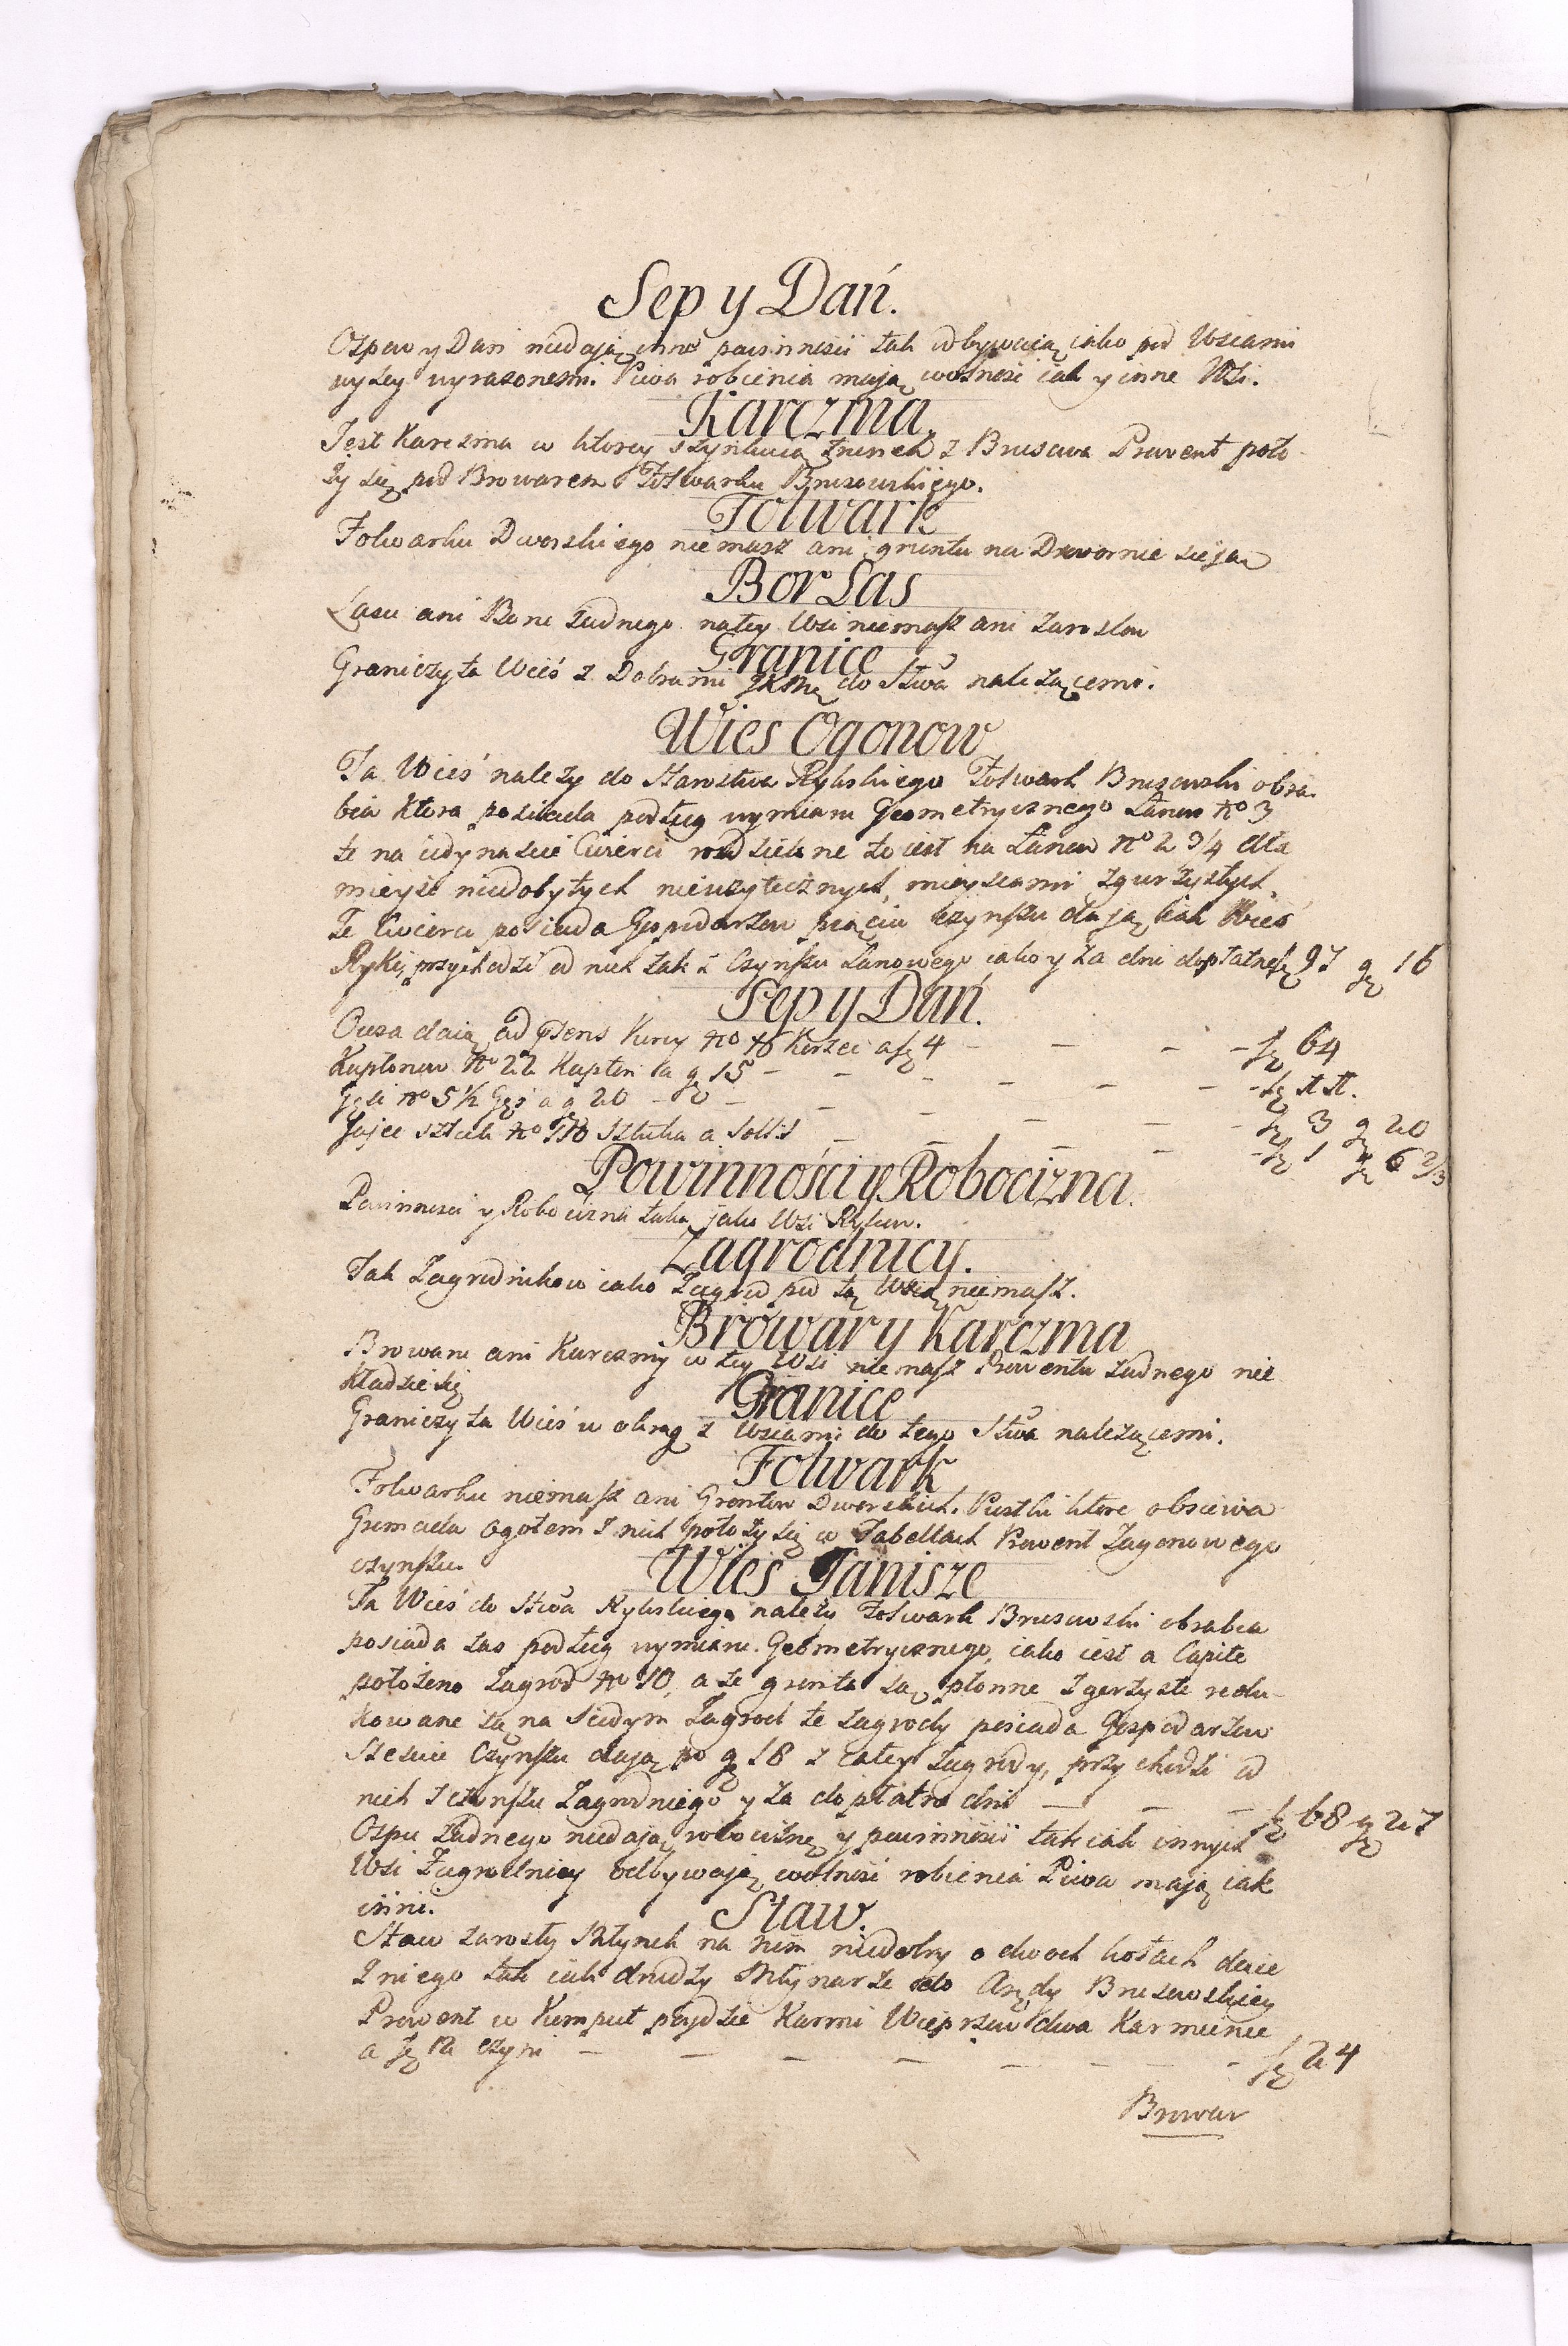 Sep y Dań.
Ospow y Dań niedają inne powinnosci tak odbywaią iako pod Wsiami
wyzey wyrazonemi. Piwa robienia mają wolnosc iak y inne Wsi.
Karczma.
Jest Karczma w ktorey szynkuią trunek z Brusowa Prowent poło-
ży się pod Browarem Folwarku Brusowskiego.
Folwark
Folwarku Dworskiego niemasz ani gruntu na Dwornie sieją
Bor Las
Lasu ani Boru żadnego na tey Wsi niemasz ani Zarosłow
Granice
Graniczy ta Wieś z Dobrami do Stwa należącemi.
Wies Ogonow
Ta Wieś należy do Starostwa Ryskiego Folwark Brusowski obra-
bia ktora posiada podług wymiaru Geometrycznego Łanow No 3
te na iedynascie Cwierci rozdzielone to iest na Łanow No 2 3/4 dla
mieysc niedobytych nieuzytecznych, mieyscami zgurzystych.
Te Cwierci posiada Gospodarzow pięciu czynszu dają iak Wieś
Ryki, przychodzi od nich tak z Czynszu Łanowego iako y za dni dopłatne fl 97 g 16
Sep y Dań.
Owsa daią ad Dens Kurcy No 16 Korzec a fl 4 - - - - fl 64
Kapłonow No 22 Kapłon a g 15 - - - - - - - fl 11.
Gęsi No 5 1/2 Gęś a g 20 - - - - - - fl 3 g 20
Jajec sztuk No 110 Sztuka a - - - - - fl 1 g 6 2/3
Powinności y Robocizna.
Powinnosci y Robocizna taka jako Wsi Rykow.
Zagrodnicy.
Tak Zagrodnikow iako Zagrod pod tą Wsią niemasz.
Browar y Karczma
Browaru ani Karczmy w tey Wsi niemasz Prowentu żadnego nie
kładzie się
Granice
Graniczy ta Wieś w okrąg z Wsiami do tego Stwa należącemi.
Folwark
Folwarku niemasz ani Grontow Dworskich. Pustki ktore obsiewa
Gromada ogołem z nich położy się w Tabellach Prowent Zagonowego
czynszu.
Wies Janisze
Ta Wieś do Stwa Ryskiego należy Folwark Brusowski obrabia
posiada zas podług wymiaru Geometrycznego, iako iest a Capite
położono Zagrod No 10, a ze grunta są płonne zgorzyste redu-
kowane są na Siedym Zagrod te zagrody posiada Gospodarzow
Szesciu Czynszu dają po g 18 z całey zagrody, przychodzi od
nich z czynszu Zagrodniego y za dopłatne dni - - - fl 68 g 27
Ospu żadnego niedają, robociznę y powinności tak iak innych
Wsi Zagrodnicy odbywają, wolnosc robienia Piwa mają iak
inni.
Staw.
Staw zarosły Młynek na nim niedobry o dwoch kołach daie
z niego tak iak drudzy Młynarze do Arędy Brusowskiey
Prowent w Komput poydzie Karmi Wieprzow dwa Karmienie
a fl 12 czyni - - - - - - - fl 24
Browar